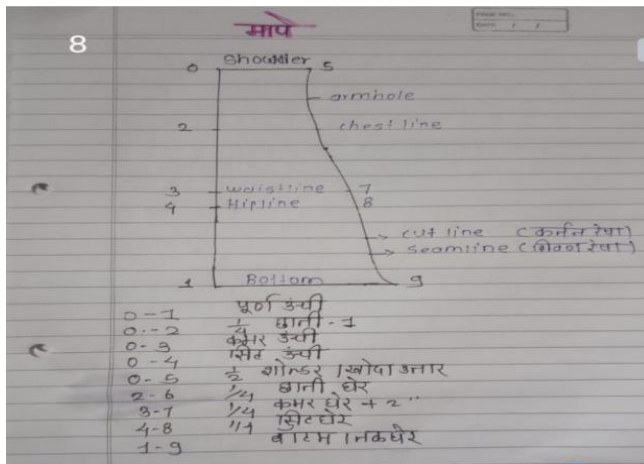 मापे
PAGE NO.:
DATE: / /
8
0 Shoulder 5
armhole
2 chest line
3 waistline 7
4 Hipline 8
cut line (कर्तन रेषा)
seamline (शिवण रेषा)
1 Bottom 9
0-1 पूर्ण उंची
0-2 1/4 छाती - 1
0-3 कमर उंची
0-4 सिट उंची
0-5 1/2 शोल्डर / खोदा उतार
2-6 1/4 छाती घेर
3-7 1/4 कमर घेर + 2"
4-8 सिटघेर
1-9 बाटम